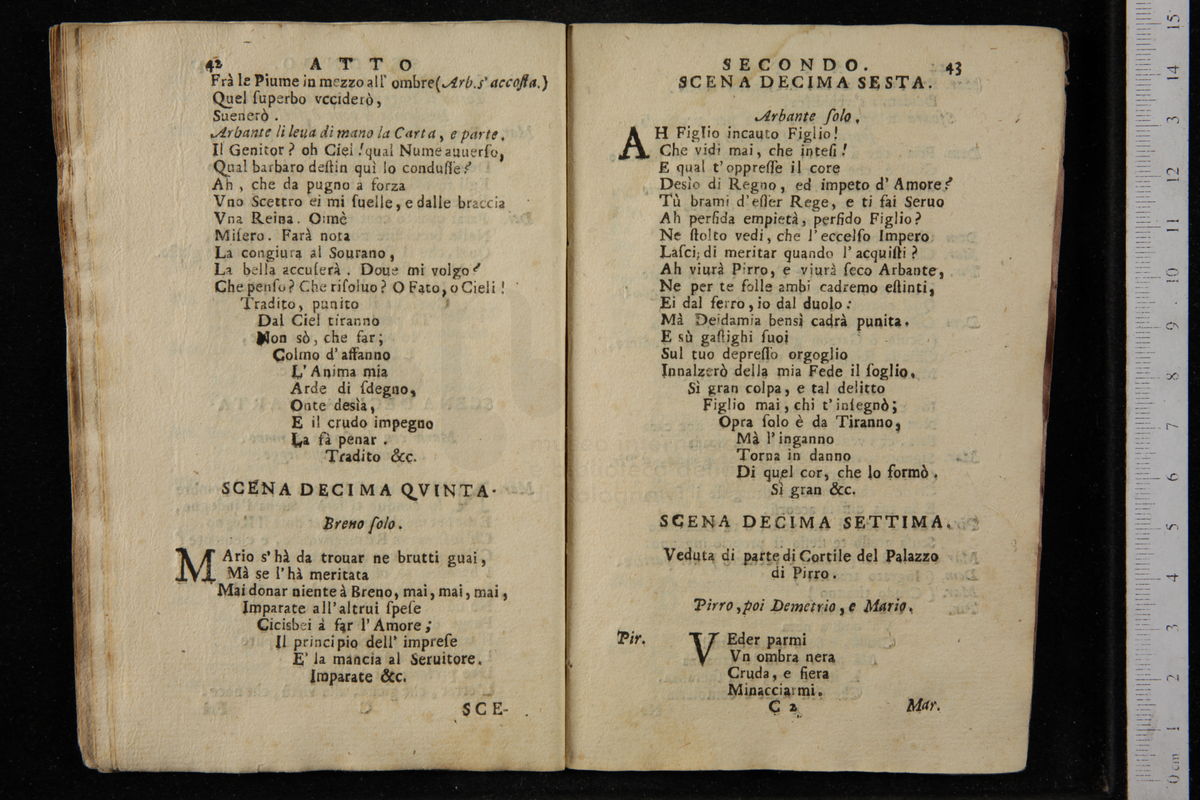 42 ATTO
Frà le Piume in mezzo all' ombre (Arb. s' accoſta.)
Quel ſuperbo vcciderò,
Suenerò.
Arbante li leua di mano la Carta, e parte.
Il Genitor? oh Ciel! qual Nume auuerſo,
Qual barbaro deſtin quì lo conduſſe?
Ah, che da pugno a forza
Vno Scettro ei mi ſuelle, e dalle braccia
Vna Reina. Oimè
Miſero. Farà nota
La congiura al Sourano,
La bella accuſerà. Doue mi volgo?
Che penſo? Che riſoluo? O Fato, o Cieli!
Tradito, punito
Dal Ciel tiranno
Non sò, che far;
Colmo d' affanno
L' Anima mia
Arde di ſdegno,
Onte desìa,
E il crudo impegno
La fà penar.
Tradito &c.
SCENA DECIMA QVINTA.
Breno ſolo.
MArio s' hà da trouar ne brutti guai,
Mà se l' hà meritata
Mai donar niente à Breno, mai, mai, mai,
Imparate all' altrui ſpeſe
Cicisbei à far l' Amore;
Il principio dell' impreſe
E' la mancia al Seruitore.
Imparate &c.
SCE-
SECONDO. 43
SCENA DECIMA SESTA.
Arbante ſolo.
AH Figlio incauto Figlio!
Che vidi mai, che inteſi!
E qual t' oppreſſe il core
Desìo di Regno, ed impeto d' Amore?
Tù brami d' eſſer Rege, e ti fai Seruo
Ah perfida empietà, perfido Figlio?
Ne ſtolto vedi, che l' eccelſo Impero
Laſci; di meritar quando l' acquiſti?
Ah viurà Pirro, e viurà ſeco Arbante,
Ne per te folle ambi cadremo eſtinti,
Ei dal ferro, io dal duolo:
Mà Deidamia bensì cadrà punita.
E sù gaſtighi ſuoi
Sul tuo depreſſo orgoglio
Innalzerò della mia Fede il ſoglio.
Sì gran colpa, e tal delitto
Figlio mai, chi t' inſegnò;
Opra ſolo è da Tiranno,
Mà l' inganno
Torna in danno
Di quel cor, che lo formò.
Sì gran &c.
SCENA DECIMA SETTIMA.
Veduta di parte di Cortile del Palazzo
di Pirro.
Pirro, poi Demetrio, e Mario.
Pir. VEder parmi
Vn ombra nera
Cruda, e fiera
Minacciarmi.
C 2 Mar.
0 cm 1 2 3 4 5 6 7 8 9 10 11 12 13 14 15